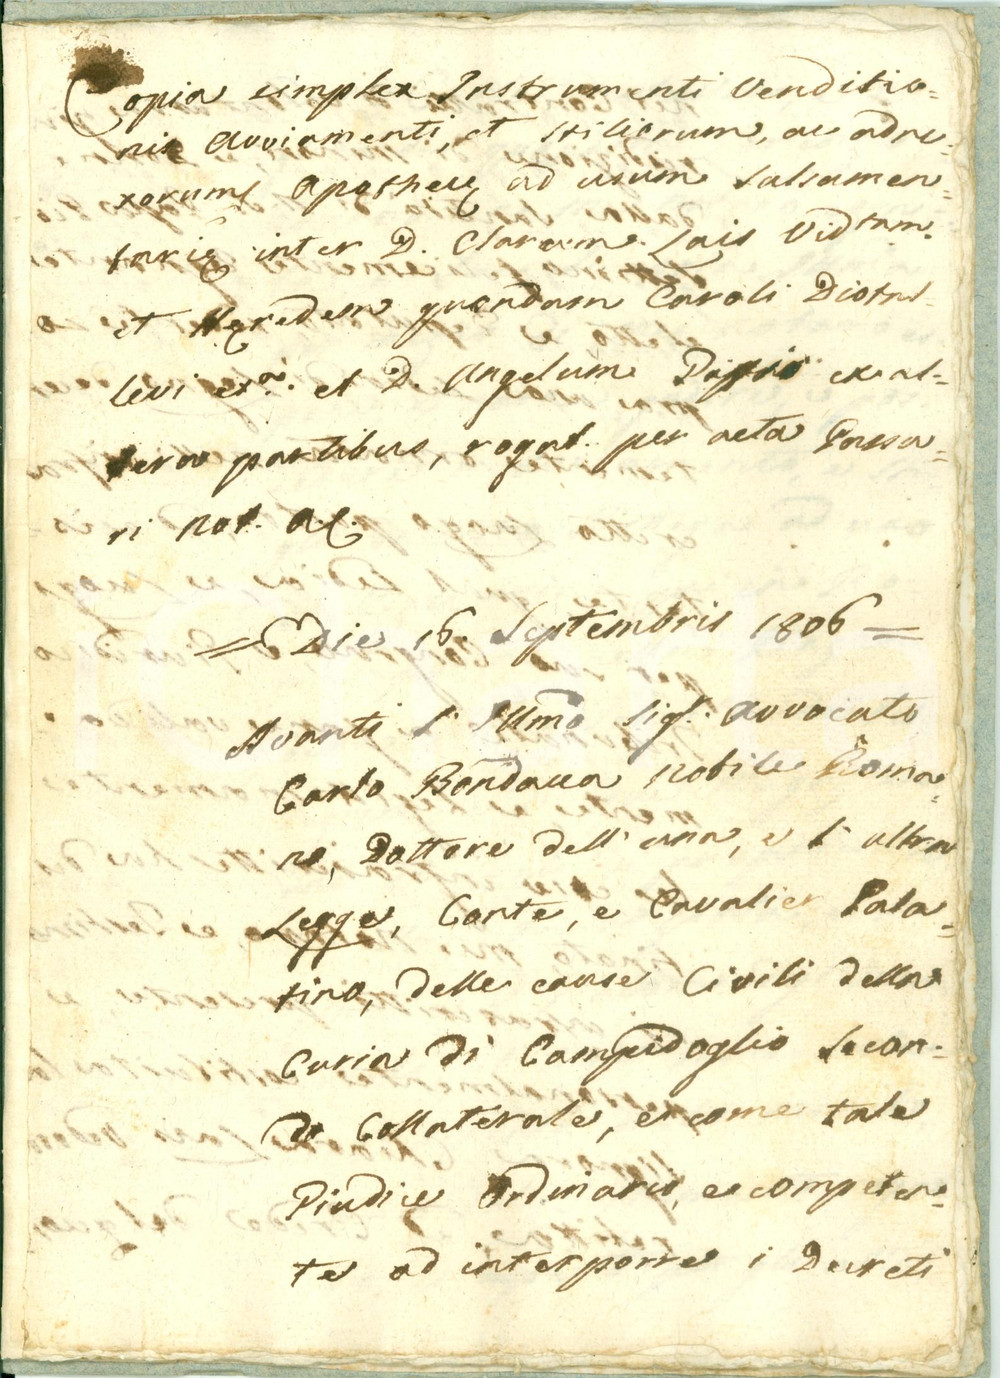 Copia simplex Instrumenti Venditio=
nis Avviamenti, et Stiliorum, ac adne=
xorum Apothecę ad usum Salsamen=
tarię inter D. Claram Lais Vid.tam
et Hęredem quondam Caroli Diotal=
levi et D. Angelum ex al=
tera partibus, rogat. per acta Passa=
ri Not. AC.
= Die 16. Septembris 1806 =
Avanti l' Illmo Sigr. Avvocato
Carlo Bondacca Nobile Roma=
no, Dottore dell' una, e l' altra
Legge, Conte, e Cavalier Pala=
tino, delle cause Civili della
Curia di Campidoglio Secon=
do Collaterale, e come tale
Giudice Ordinario, e competen=
te ad interporre i Decreti